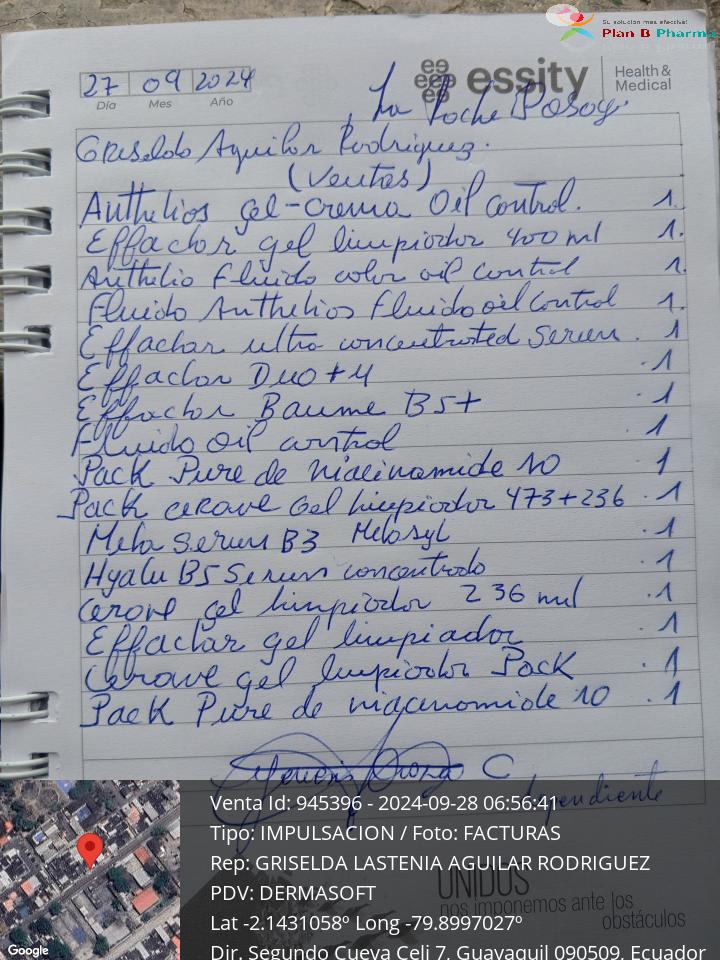 Su solución más efectiva!
Plan B Pharma
27 09 2024
Día Mes Año
essity Health & Medical
La Roche Posay.
Griselda Aguilar Rodriguez.
(Ventas)
Anthelios gel-crema Oil control. 1.
Effaclar gel limpiador 400 ml 1.
Anthelio Fluido color oil control 1.
Fluido Anthelios Fluido oil control 1.
Effaclar ultra concentrated Serum. 1
Effaclar Duo + M .1
Effaclar Baume B5+ .1
Fluido Oil control 1
Pack Pure de niacinamide 10 1
Pack cerave Gel limpiador 473+236 .1
Mela Serum B3 Melasyl .1
Hyalu B5 Serum concentrado .1
Cerave gel limpiador 236 ml .1
Effaclar gel limpiador .1
Cerave gel limpiador Pack .1
Pack Pure de niacinamide 10 .1
C
dependiente
Venta Id: 945396 - 2024-09-28 06:56:41
Tipo: IMPULSACION / Foto: FACTURAS
Rep: GRISELDA LASTENIA AGUILAR RODRIGUEZ
PDV: DERMASOFT
Lat -2.1431058º Long -79.8997027º
Dir. Segundo Cueva Celi 7, Guayaquil 090509, Ecuador
UNIDOS
nos imponemos ante los
obstáculos
Google